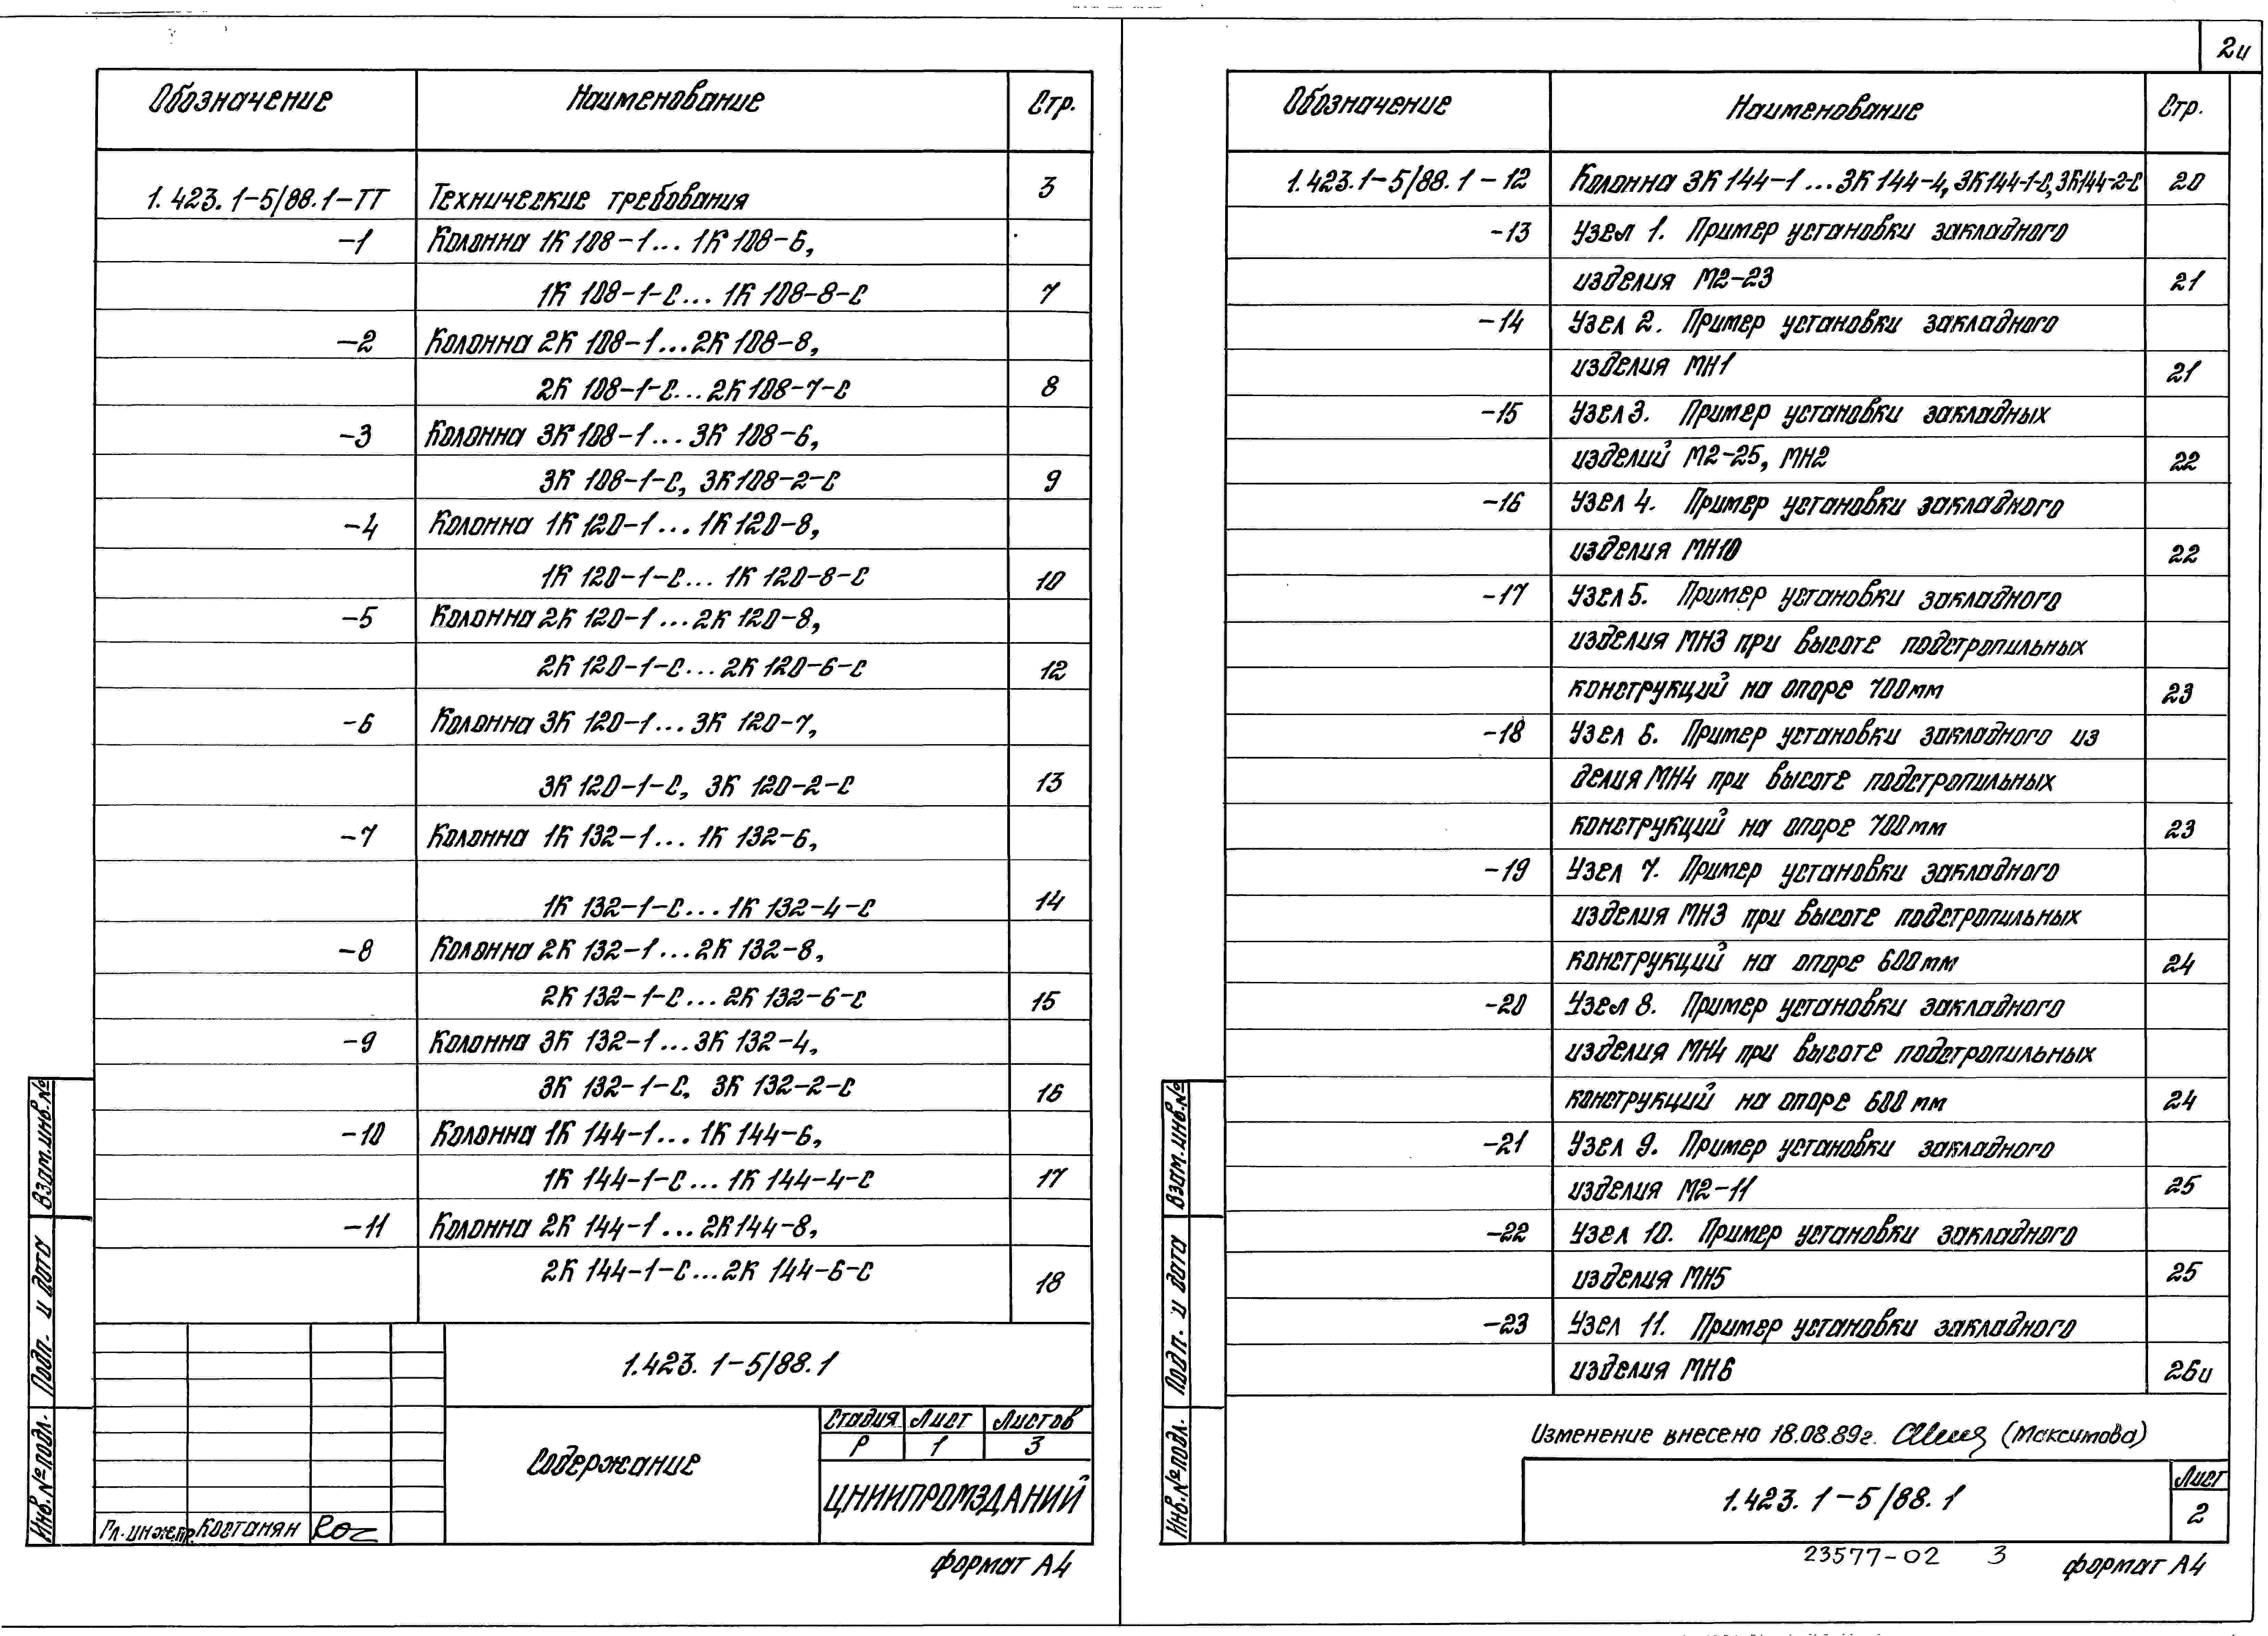 Обозначение Наименование Стр.
1.423.1-5/88.1-ТТ Технические требования 3
-1 Колонна 1К 108-1...1К 108-6,
1К 108-1-С...1К 108-8-С 7
-2 Колонна 2К 108-1...2К 108-8,
2К 108-1-С...2К 108-7-С 8
-3 Колонна 3К 108-1...3К 108-6,
3К 108-1-С, 3К 108-2-С 9
-4 Колонна 1К 120-1...1К 120-8,
1К 120-1-С...1К 120-8-С 10
-5 Колонна 2К 120-1...2К 120-8,
2К 120-1-С...2К 120-6-С 12
-6 Колонна 3К 120-1...3К 120-7,
3К 120-1-С, 3К 120-2-С 13
-7 Колонна 1К 132-1...1К 132-6,
1К 132-1-С...1К 132-4-С 14
-8 Колонна 2К 132-1...2К 132-8,
2К 132-1-С...2К 132-6-С 15
-9 Колонна 3К 132-1...3К 132-4,
3К 132-1-С, 3К 132-2-С 16
-10 Колонна 1К 144-1...1К 144-6,
1К 144-1-С...1К 144-4-С 17
-11 Колонна 2К 144-1...2К 144-8,
2К 144-1-С...2К 144-6-С 18
1.423.1-5/88.1
Содержание
Стадия Лист Листов
Р 1 3
ЦНИИПРОМЗДАНИЙ
Гл.инж.пр. Костанян
Формат А4
Взам.инв.№
Подп. и дата
Инв.№подл.
2и
Обозначение Наименование Стр.
1.423.1-5/88.1-12 Колонна 3К 144-1...3К 144-4, 3К144-1-С, 3К144-2-С 20
-13 Узел 1. Пример установки закладного
изделия М2-23 21
-14 Узел 2. Пример установки закладного
изделия МН1 21
-15 Узел 3. Пример установки закладных
изделий М2-25, МН2 22
-16 Узел 4. Пример установки закладного
изделия МН10 22
-17 Узел 5. Пример установки закладного
изделия МН3 при высоте подстропильных
конструкций на опоре 700мм 23
-18 Узел 6. Пример установки закладного из
делия МН4 при высоте подстропильных
конструкций на опоре 700мм 23
-19 Узел 7. Пример установки закладного
изделия МН3 при высоте подстропильных
конструкций на опоре 600мм 24
-20 Узел 8. Пример установки закладного
изделия МН4 при высоте подстропильных
конструкций на опоре 600мм 24
-21 Узел 9. Пример установки закладного
изделия М2-11 25
-22 Узел 10. Пример установки закладного
изделия МН5 25
-23 Узел 11. Пример установки закладного
изделия МН6 26и
Изменение внесено 18.08.89г. (Максимова)
1.423.1-5/88.1
Лист
2
23577-02 3
Формат А4
Взам.инв.№
Подп. и дата
Инв.№подл.